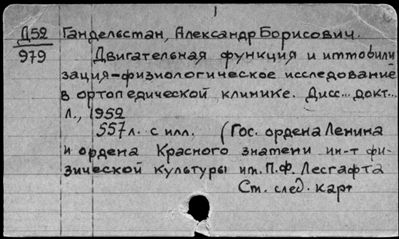 Д52 Гандельсман, Александр Борисович.
979 Двигательная функция и иммобили
зация-физиологическое исследование
в ортопедической клинике. Дисс... докт..
Л., 1952
557 л. с илл. (Гос. ордена Ленина
и ордена Красного знамени ин-т фи-
зической культуры им. П.Ф. Лесгафта
См. след. карт